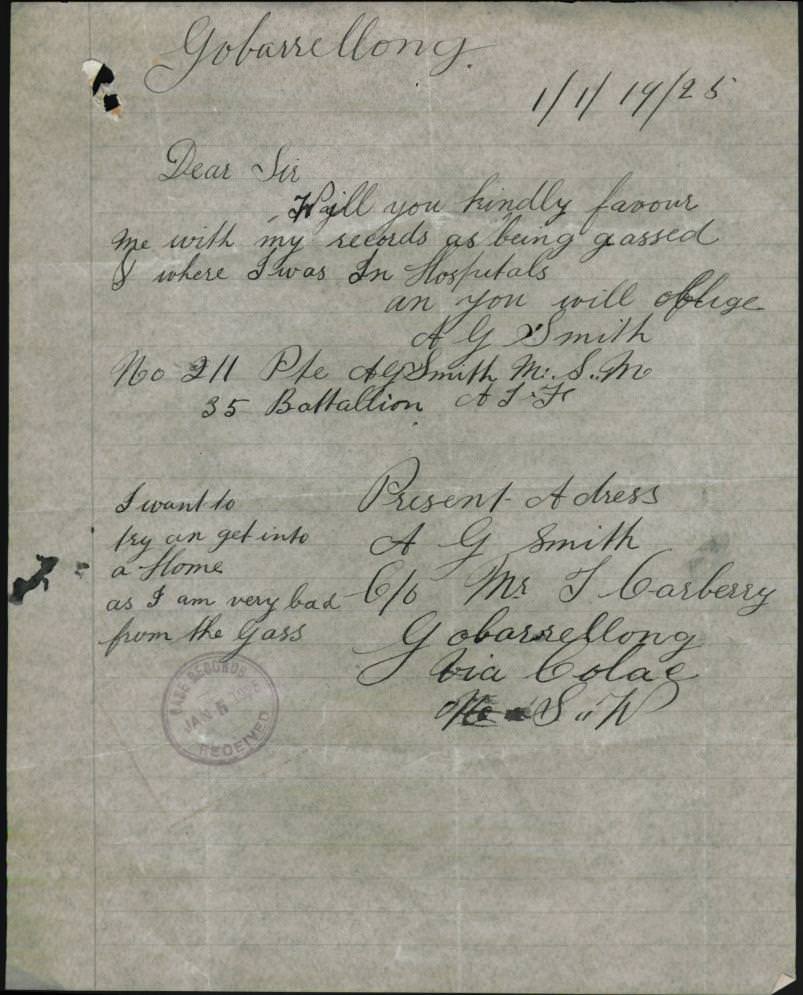 Gobarrellong.
1/1/19/25
Dear Sir
Will you kindly favour
me with my records as being gassed
& where I was In Hospitals
an you will oblige
A G Smith
No 211 Pte A G Smith M.S.M
35 Battallion A I F
I want to
try an get into
a Home
as I am very bad
from the Gass
Present Adress
A G Smith
C/o Mr T Carberry
Gobarrellong
Via Colac
N S W
BASE RECORDS
JAN 5
RECEIVED